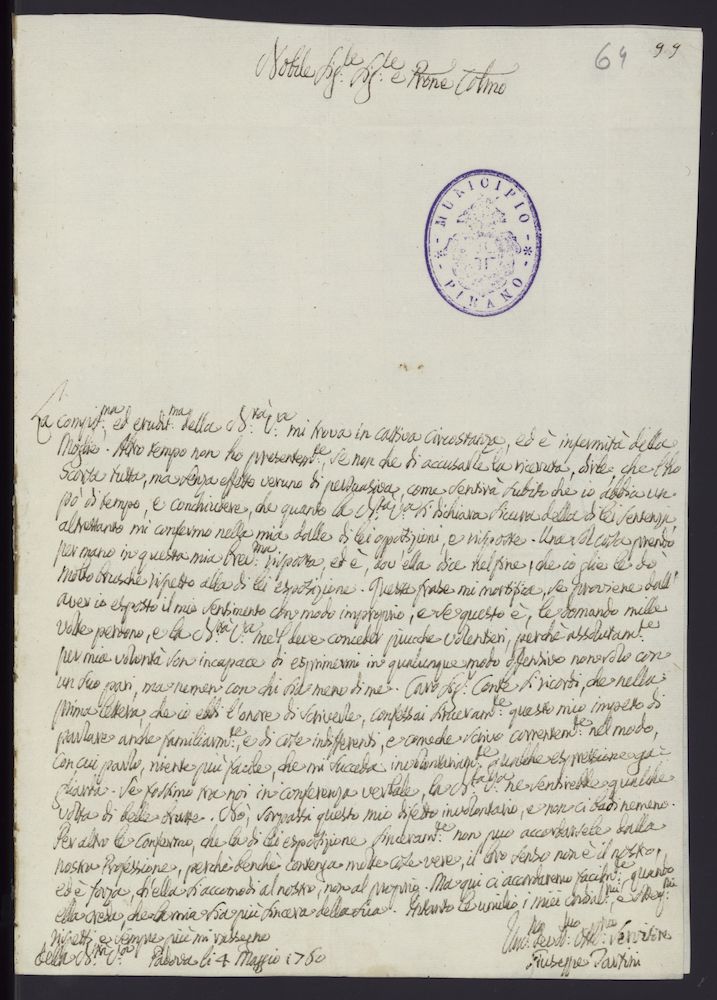 64
99
Nobile Sig.te Sig.te e Prone Colmo
MUNICIPIO
PIRANO
La compit.ma ed erudit.ma della S.ria V.a mi trova in cattiva circostanza, ed è infermità della
Moglie. Altro tempo non ho presentem.te, se non che di accusarle la ricevuta, dirle che l'ho
Scorsa tutta, ma senza effetto veruno di persuasiva, come sentirà subito che io abbia un
pò di tempo, e conchiudere, che quanto la S.ria V.a si dichiara sicura della di lei sentenza,
altrettanto mi confermo nella mia dalle di lei opposizioni, e risposte. Una sol cosa prendo
per mano in questa mia brev.ma risposta, ed è, dov'ella dice nel fine, che io glie le dò
molto brusche rispetto alla di lei esposizione. Questa frase mi mortifica, se proviene dall'
aver io esposto il mio sentimento con modo improprio, e se questo è, le domando mille
volte perdono, e la S.ria V.a me l deve conceder piucche volentieri, perchè assolutam.te
per mia volontà son incapace di esprimermi in qualunque modo offensivo non solo con
un suo pari, ma nemen con chi sia meno di me. Caro Sig.r Conte si ricordi, che nella
prima lettera, che io ebbi l'onore di scriverle, confessai sinceram.te questo mio impeto di
parlare anche familiarm.te, e di cose indifferenti, e come che scrivo correntem.te nel modo,
con cui parlo, niente più facile, che mi succeda involontariam.te qualche espressione ga-
gliarda. Se fossimo tra noi in conferenza verbale, la S.ria V.a ne sentirebbe qualche
volta di belle brusse. Nò, sorpassi questo mio difetto involontario, e non ci badi nemeno.
Per altro le confermo, che la di lei esposizione sinceram.te non può accordarsele dalla
nostra Professione, perchè benchè contenga molte cose vere, il loro senso non è il nostro,
ed è forza, ch'ella s'accomodi al nostro, non al proprio. Ma qui ci accorderemo facilm.te, quando
ella creda, che la mia sia più sincera della sua. Intanto le umilio i miei cordial.mi, e
rispetti, e sempre più mi rassegno
della S.ria V.a Padova li 4 Maggio 1760
Um.mo Dev.mo Obb.mo Servitore
Giuseppe Tartini